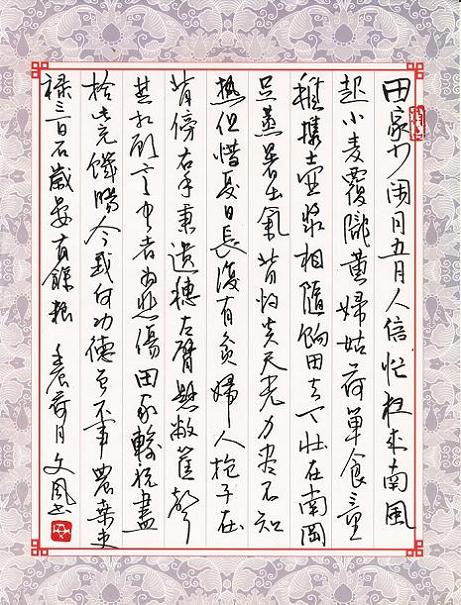 田家少闲月五月人倍忙夜来南風
起小麦覆隴黄婦姑荷箪食童
稚携壶浆相随饷田去丁壮在南岡
足蒸暑土氣背灼炎天光力尽不知
热但惜夏日長復有贫婦人抱子在
背傍右手秉遗穗左臂懸敝筐聽
其相顾言闻者为悲傷田家輸税盡
拾此充饑腸今我何功德曾不事農桑吏
禄三百石歲晏有餘粮 壬辰荷月文風书